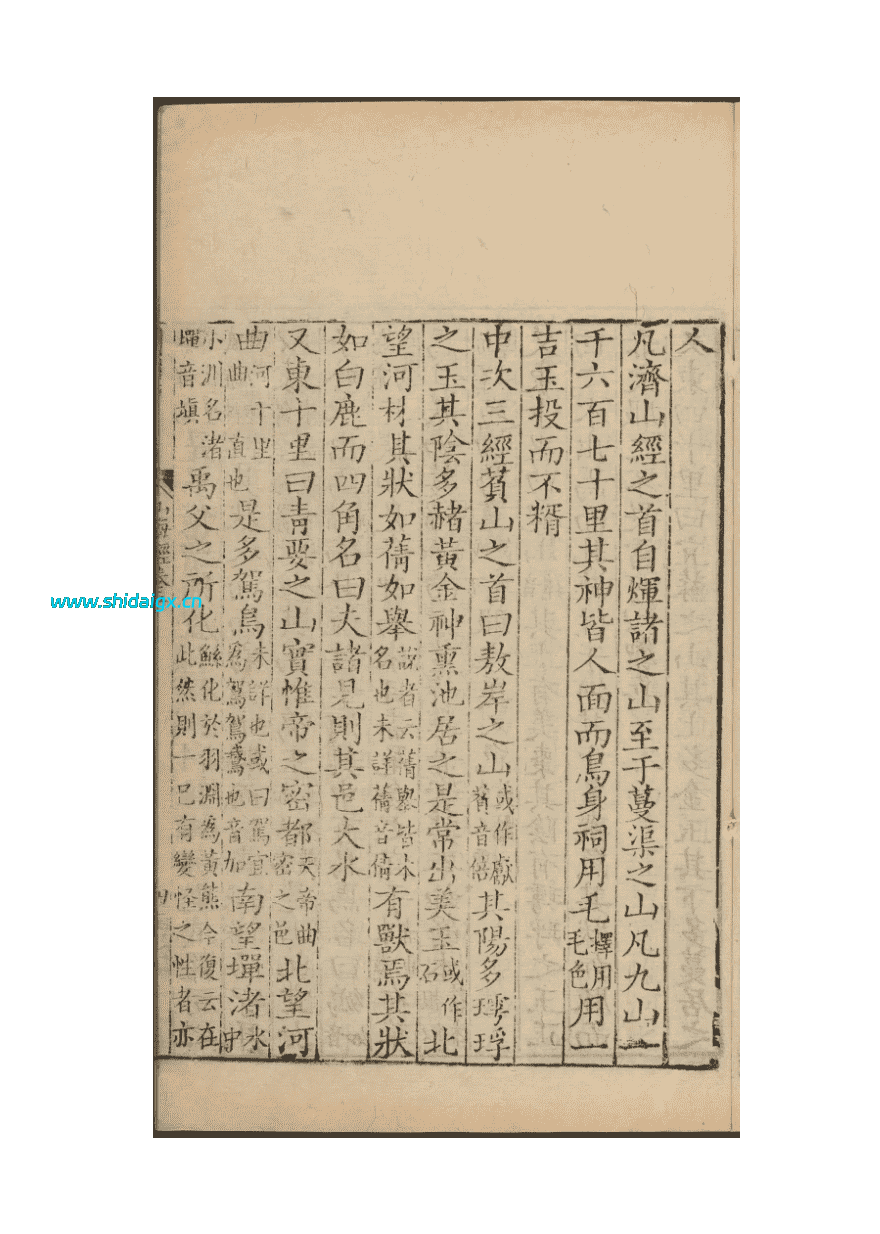 人
凡濟山經之首自煇諸之山至于蔓渠之山凡九山一
千六百七十里其神皆人面而鳥身祠用毛擇用毛色用一
吉玉投而不糈
中次三經萯山之首曰敖岸之山或作獻萯音倍其陽多㻬琈
之玉其陰多赭黃金神熏池居之是常出美玉或作石北
望河林其狀如蒨如舉說者云蒨舉皆木名也未詳蒨音倩有獸焉其狀
如白鹿而四角名曰夫諸見則其邑大水
又東十里曰青要之山實惟帝之密都天帝曲密之邑北望河
曲河千里一曲一直也是多駕鳥未詳也或曰駕宜為鴐鴐鵞也音加南望墠渚水中
小洲名渚墠音填禹父之所化鯀化於羽淵為黃熊今復云在此然則一已有變怪之性者亦
山海經卷
www.shidaigx.cn